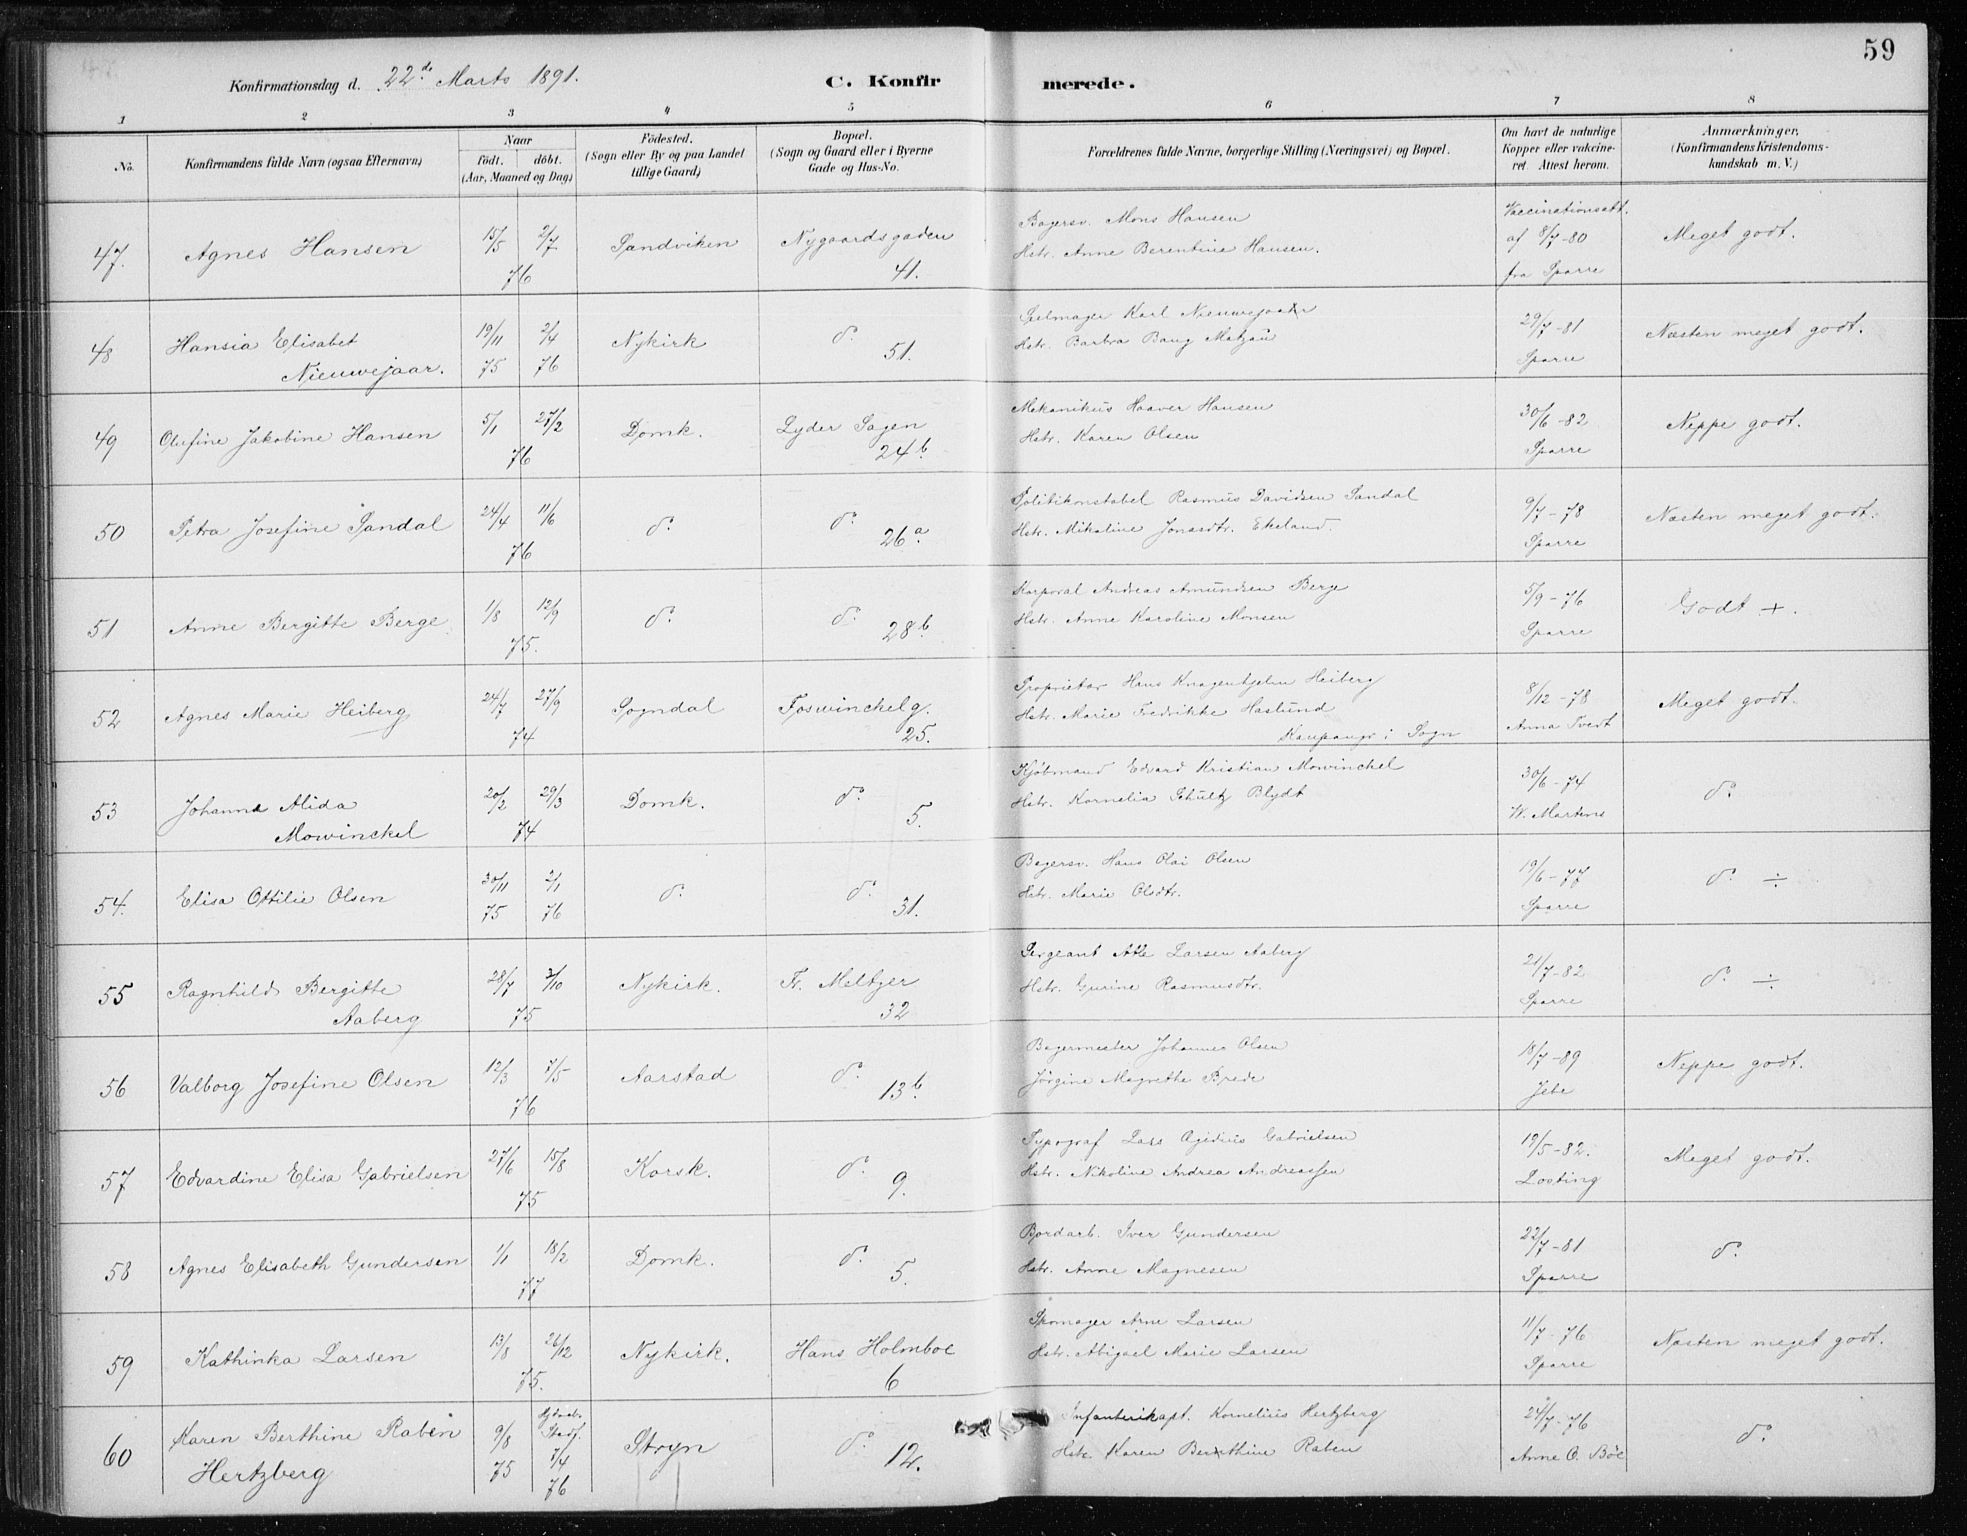 59
Konfirmationsdag d. 22de Marts 1891. C. Konfirmerede.
1 2 3 4 5 6 7 8
No. Konfirmandens fulde Navn (ogsaa Efternavn) Naar födt. döbt. (Aar, Maaned og Dag) Födested. (Sogn eller By og paa Landet tillige Gaard) Bopæl. (Sogn og Gaard eller i Byerne Gade og Hus-No. Forældrenes fulde Navne, borgerlige Stilling (Næringsvei) og Bopæl. Om havt de naturlige Kopper eller vakcineret. Attest herom. Anmærkninger, (Konfirmandens Kristendomskundskab m. V.)
47. Agnes Hansen 15/5 2/7 76 Sandviken Nygaardsgaden 41.
Bagersv. Mons Hansen
Hstr. Anne Berentine Hansen.
Vaccinationsatt. af 8/7-80 fra Sparre Meget godt.
48 Hansia Elisabet Nieuwejaar. 19/11 75 2/4 76 Nykirk do 51.
Seilmager Karl Nieuwejaar
Hstr. Barbra Bang Matzau
29/7-81 Sparre Næsten meget godt.
49 Olufine Jakobine Hansen 5/1 27/2 76 Domk. Lyder Sagen 24b.
Mekanikus Haaver Hansen
Hstr. Karen Olsen
30/6-82 Sparre Neppe godt.
50 Petra Josefine Sandal 24/4 11/6 76 do do 26a.
Politikonstabel Rasmus Davidsen Sandal
Hstr. Mikaline Jonasdtr. Ekeland
9/7-78 Sparre Næsten meget godt.
51 Anne Bergitte Berge 1/8 12/9 75. do do 28b.
Korporal Andreas Amundsen Berge
Hstr. Anne Karoline Monsen
5/9-76 Sparre Godt +.
52 Agnes Marie Heiberg 24/7 27/9 74 Sogndal Foswinckelg. 25.
Proprietær Hans Knagenhjelm Heiberg
Hstr. Marie Fredrikke Haslund
Kaupanger i Sogn
8/12-78 Anna Tvedt Meget godt.
53 Johanna Alida Mowinckel 20/2 29/3 74 Domk. do 5.
Kjöbmand Edvard Kristian Mowinckel
Hstr. Kornelia Schultz Blydt
30/6-74 W. Martens do
54. Elisa Ottilie Olsen 30/11 75 2/1 76 do do 31.
Bagersv. Hans Olai Olsen
Hstr. Marie Olsdtr.
19/6-77 Sparre do ÷
55 Ragnhild Bergitte Aaberg 28/7 3/10 75 Nykirk. Fr. Meltzer 32
Sergeant Atle Larsen Aaberg
Hstr. Gurine Rasmusdtr.
21/7-82 Sparre do ÷
56 Valborg Josefine Olsen 12/3 7/5 76 Aarstad do 13b.
Bagermester Johannes Olsen
Jörgine Magrethe Brede
18/7-89 Jebe Neppe godt.
57 Edvardine Elisa Gabrielsen 27/6 15/8 75 Korsk. do 9.
Typograf Lars Egidius Gabrielsen
Hstr. Nikoline Andrea Andreassen
19/5-82. Losting Meget godt.
58 Agnes Elisabeth Gundersen 1/1 18/2 77 Domk. do 5.
Bordarb. Iver Gundersen
Hstr. Anne Magnesen
22/7-81 Sparre do
59 Kathinka Larsen 13/8 26/12 75. Nykirk. Hans Holmboe 6
Skomager Arne Larsen
Hstr. Abigael Marie Larsen
11/7-76 Sparre Næsten meget godt.
60 Karen Berthine Raben Hertzberg 9/8 75 Stadf. 1/4 76 Stryn do 12.
Infanterikapt. Kornelius Hertzberg
Hstr. Karen Berthine Raben
24/7-76 Anne O. Böe do